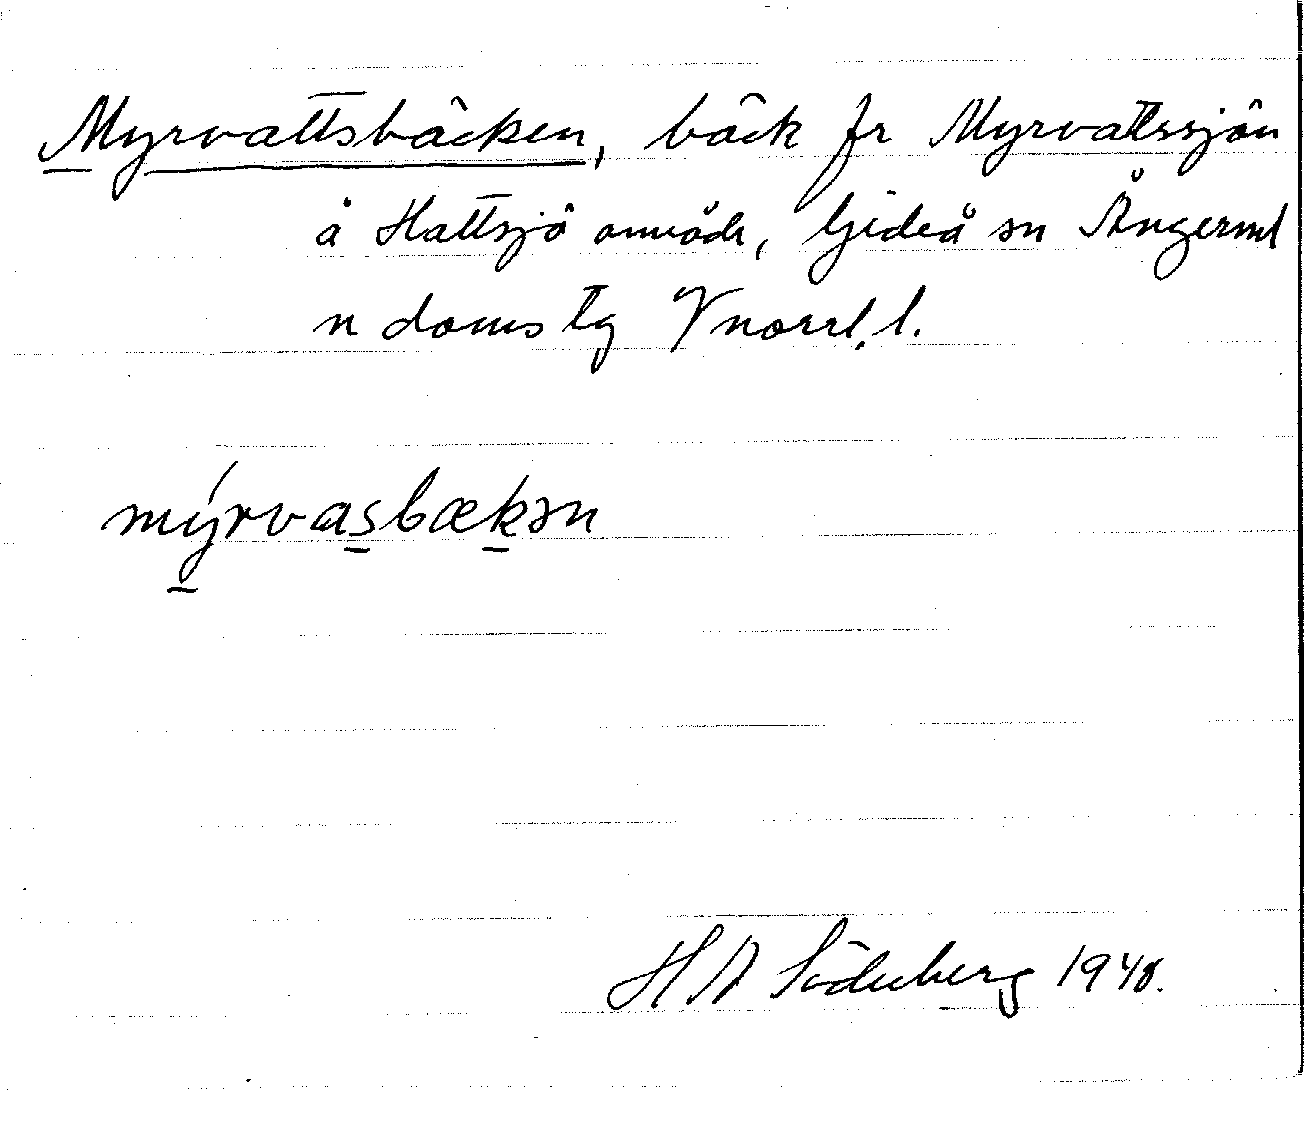 Myrvattsbäcken, bäck fr Myrvattssjön
å Hattsjö område, Gideå sn Ångerml
n doms tg Vnorrl. l.
mýrvasbækən
H A Söderberg 1940.